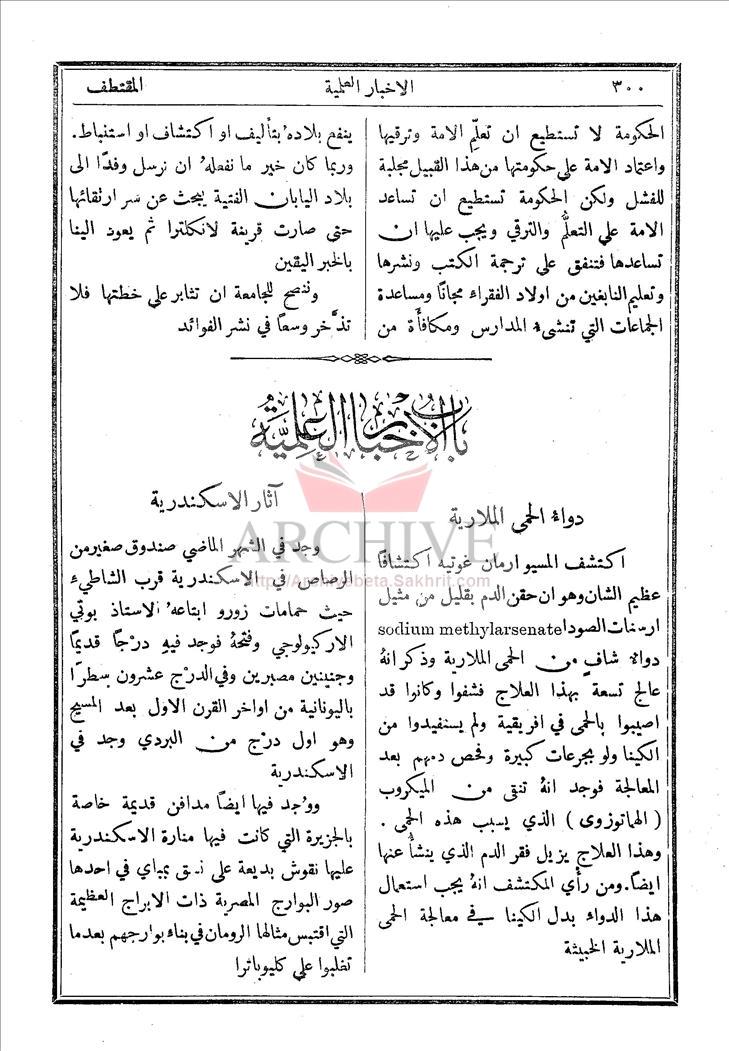 ٣٠٠
الاخبار العلمية
المقتطف
الحكومة لا تستطيع ان تعلّم الامة وترقيها
واعتماد الامة على حكومتها من هذا القبيل مجلبة
للفشل ولكن الحكومة تستطيع ان تساعد
الامة على التعلُّم والترقي ويجب عليها ان
تساعدها فتنفق على ترجمة الكتب ونشرها
وتعليم النابغين من اولاد الفقراء مجانًا ومساعدة
الجماعات التي تنشىء المدارس ومكافأة من
ينفع بلاده بتأليف او اكتشاف او استنباط.
وربما كان خير ما نفعله ان نرسل وفدًا الى
بلاد اليابان الفتية يبحث عن سر ارتقائها
حتى صارت قرينة لانكلترا ثم يعود الينا
بالخبر اليقين
وننصح للجامعة ان تثابر على خطتها فلا
تذَّخر وسعًا في نشر الفوائد
باب الاخبار العلمية
دواء الحمى الملارية
اكتشف المسيو ارمان غوتيه اكتشافًا
عظيم الشان وهو ان حقن الدم بقليل من مثيل
ارسنات الصودا sodium methylarsenate
دواء شافٍ من الحمى الملارية وذكر انهُ
عالج تسعة بهذا العلاج فشفوا وكانوا قد
اصيبوا بالحمى في افريقية ولم يستفيدوا من
الكينا ولو بجرعات كبيرة وفحص دمهم بعد
المعالجة فوجد انهُ تنقى من الميكروب
(الهماتوزوى) الذي يسبب هذه الحمى.
وهذا العلاج يزيل فقر الدم الذي ينشأ عنها
ايضًا. ومن رأي المكتشف انهُ يجب استعمال
هذا الدواء بدل الكينا في معالجة الحمى
الملارية الخبيثة
آثار الاسكندرية
وجد في الشهر الماضي صندوق صغير من
الرصاص في الاسكندرية قرب الشاطيء
حيث حمامات زورو ابتاعه الاستاذ بوتي
الاركيولوجي وفتحهُ فوجد فيهِ درْجًا قديمًا
وجنينين مصبرين وفي الدرْج عشرون سطرًا
باليونانية من اواخر القرن الاول بعد المسيح
وهو اول درْج من البردي وجد في
الاسكندرية
ووُجد فيها ايضًا مدافن قديمة خاصة
بالجزيرة التي كانت فيها منارة الاسكندرية
عليها نقوش بديعة على نسق بمباي في احدها
صور البوارج المصرية ذات الابراج العظيمة
التي اقتبس مثالها الرومان في بناء بوارجهم بعدما
تغلبوا على كليوباترا
ARCHIVE
http://Archivebeta.Sakhrit.com